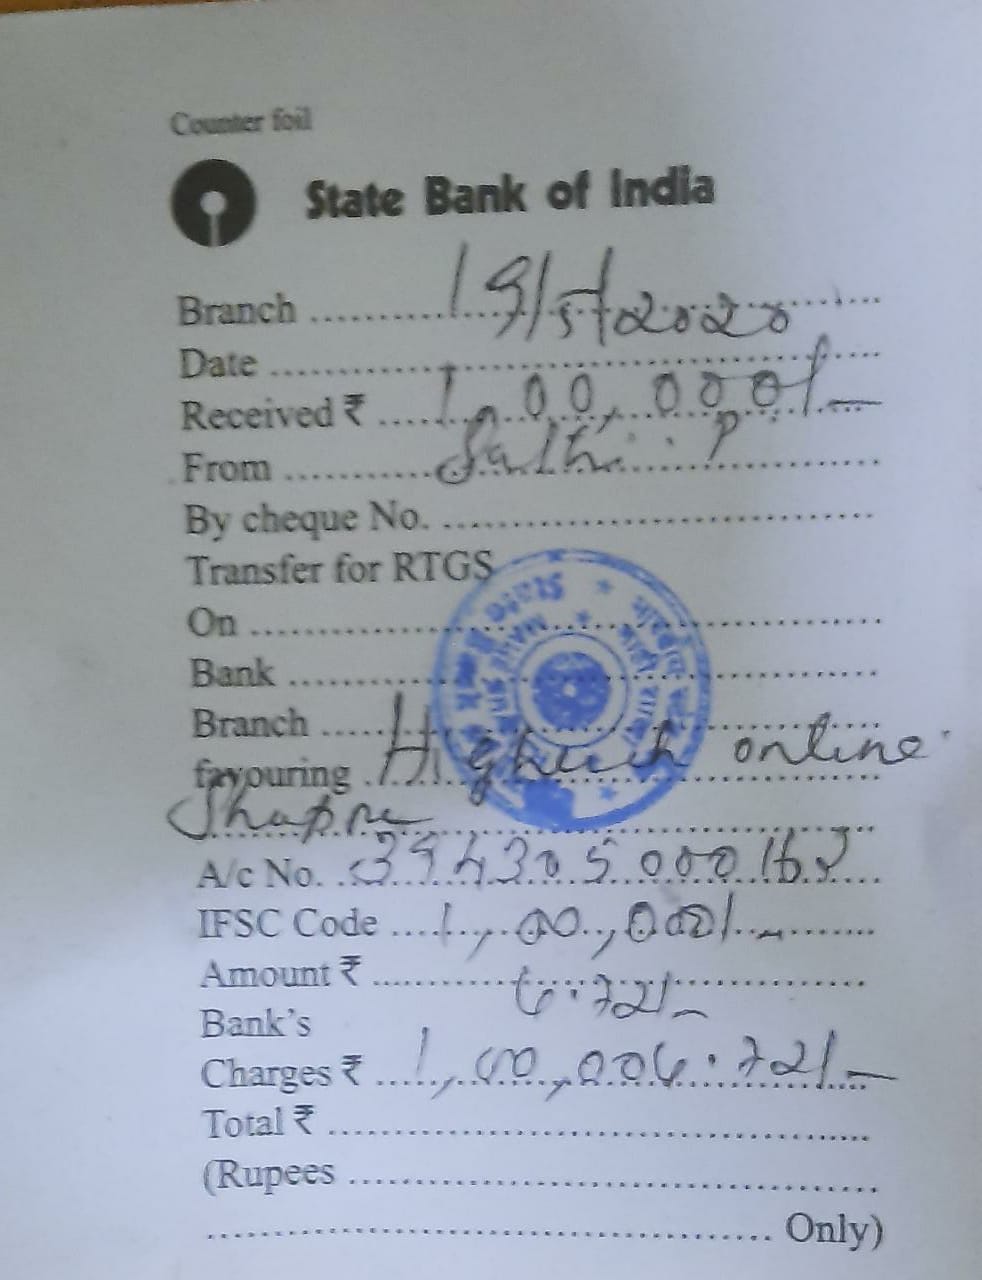 Counter foil
State Bank of India
Branch ..........
Date .......... 2020
Received ₹ .... 1,00,000/-
From .......... Sathi. P
By cheque No. ..........
Transfer for RTGS
On ..........
Bank ..........
Branch ..........
favouring .... online
A/c No. ..........
IFSC Code .... 1,00,000/-
Amount ₹ ..........
6.72/-
Bank's
Charges ₹ .... 1,00,006.72/-
Total ₹ ..........
(Rupees ..........
.......... Only)